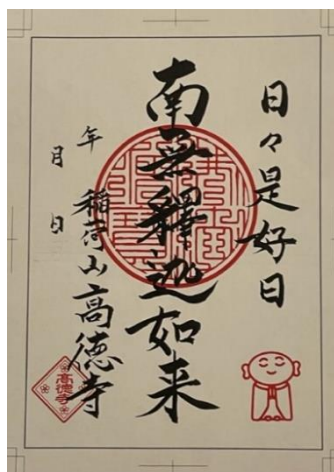 日々是好日
南無釋迦如来
年
月
日
稲荷山高徳寺
高徳寺